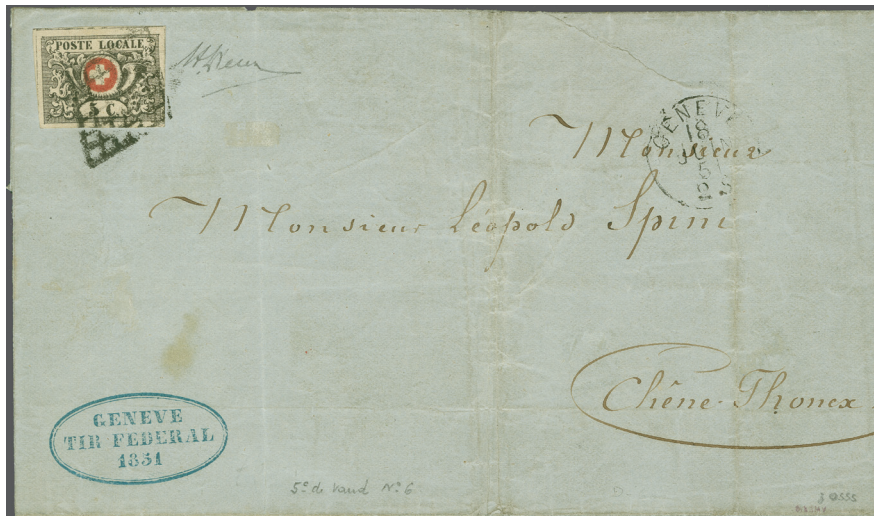 POSTE LOCALE
5 C
GENEVE
Monsieur
Monsieur Léopold Spini
Chêne-Thonex
GENEVE
TIR FEDERAL
1851
5c de Vaud No 6